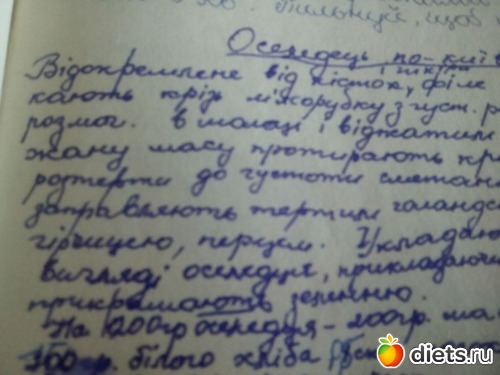 Пильнуй, щоб
Оселедець по-киї
Відокремлене від кісток, філе
і шкіри
кають крізь м'ясорубку з густ. р
розмоч. в молоці і віджатим
жану масу протирають кр
розтерти до густоти сметан
заправляють тертим голандс
гірчицею, перцем. Укладаю
вигляді оселедця, прикладаючи
прикрашають зеленню.
На 1200гр оселедця - 200гр. ма
100 гр. білого хліба
diets.ru